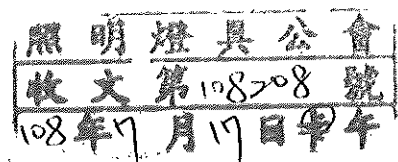 照明燈具公會
收文第108208號
108年7月17日午